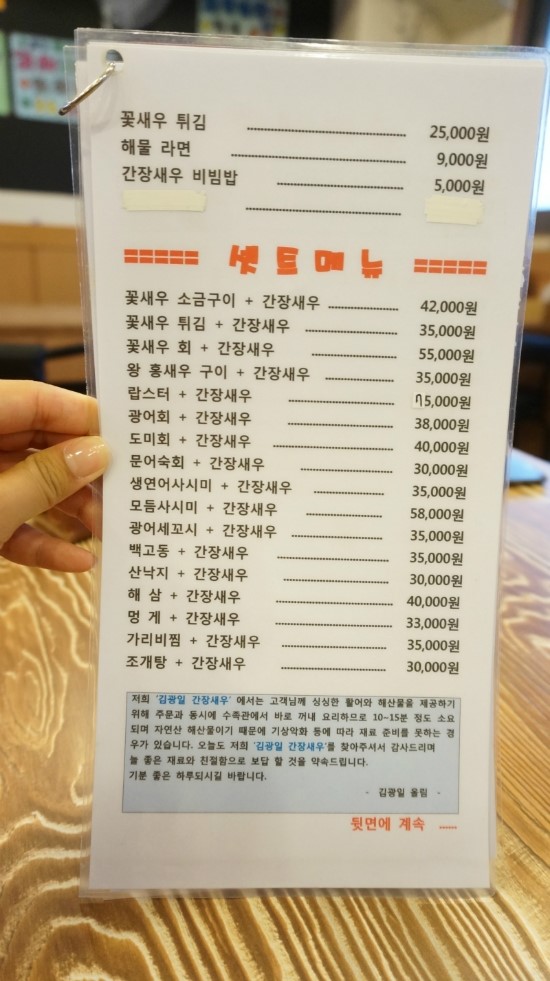 꽃새우 튀김 25,000원
해물 라면 9,000원
간장새우 비빔밥 5,000원
셋트메뉴
꽃새우 소금구이 + 간장새우 42,000원
꽃새우 튀김 + 간장새우 35,000원
꽃새우 회 + 간장새우 55,000원
왕 홍새우 구이 + 간장새우 35,000원
랍스터 + 간장새우 5,000원
광어회 + 간장새우 38,000원
도미회 + 간장새우 40,000원
문어숙회 + 간장새우 30,000원
생연어사시미 + 간장새우 35,000원
모듬사시미 + 간장새우 58,000원
광어세꼬시 + 간장새우 35,000원
백고동 + 간장새우 35,000원
산낙지 + 간장새우 30,000원
해 삼 + 간장새우 40,000원
멍 게 + 간장새우 33,000원
가리비찜 + 간장새우 35,000원
조개탕 + 간장새우 30,000원
저희 '김광일 간장새우' 에서는 고객님께 싱싱한 활어와 해산물을 제공하기
위해 주문과 동시에 수족관에서 바로 꺼내 요리하므로 10-15분 정도 소요
되며 자연산 해산물이기 때문에 기상악화 등에 따라 재료 준비를 못하는 경
우가 있습니다. 오늘도 저희 '김광일 간장새우'를 찾아주셔서 감사드리며
늘 좋은 재료와 친절함으로 보답 할 것을 약속드립니다.
기분 좋은 하루되시길 바랍니다.
- 김광일 올림 -
뒷면에 계속 .....